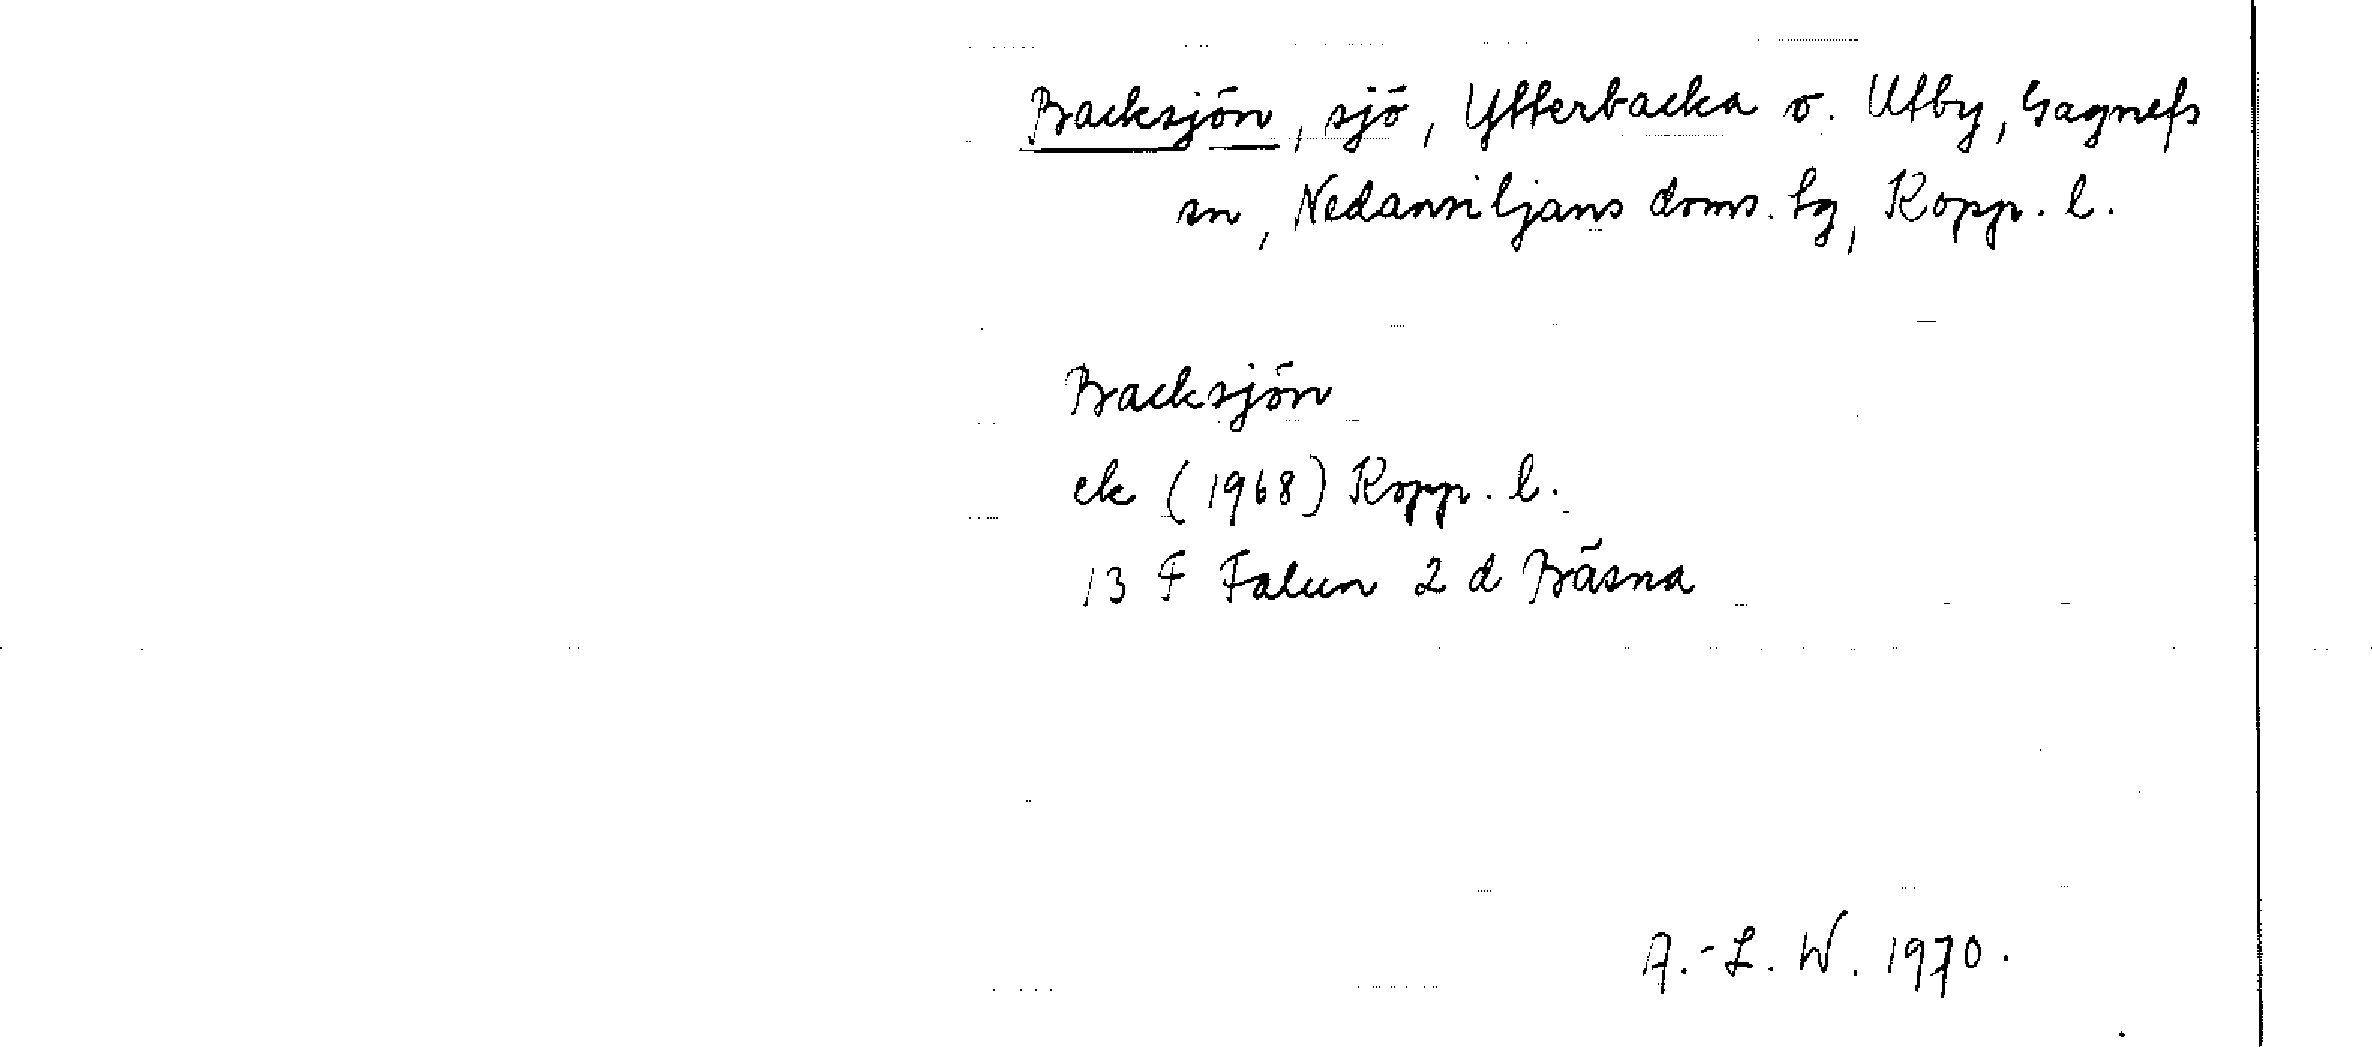 Backsjön, sjö, Ytterbacka o. Utby, Gagnefs
sn, Nedansiljans doms. lg, Kopp. l.
Backsjön
ek (1968) Kopp. l.
13 F Falun 2 d Bäsna
A.-L. W. 1970.